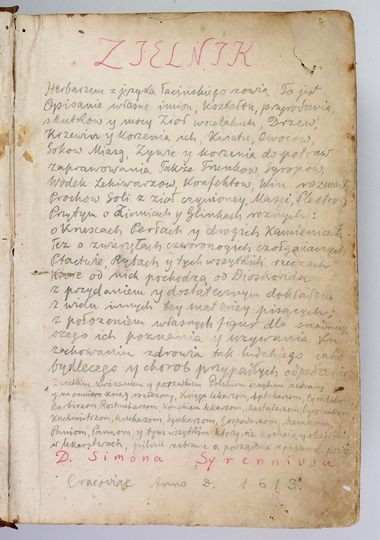 ZIELNIK
Herbarzem z języka łacińskiego zowią To jest
Opisanie własne imion, kształtu, przyrodzenia,
skutków y mocy Ziół wszelakich Drzew,
Krzewin y korzenia ich, Kwiatu, Owoców,
Soków Miazg, Żywic y korzenia do potraw
zaprawowania Także Trunków, Syropów,
Wódek Lekiwarzow, Konfektów, Win rozmait
Prochow Soli z ziół czynioney, Maści, Plastrow
Przytym o Ziemiach y Glinkach roznych:
o Kruscach Perłach y drogich Kamieniach
Też o zwierzętach czworonogich czołgaiących
Ptactwie, Rybach y tych wszystkich rzeczach
Które od nich pochodzą od Dioskorida
z przydaniem y dostatecznym dokładem
z wielu innych tey materiey piszących;
z położeniem własnych figur dla snadniey
szego ich poznania y uzywania Ku
zachowaniu zdrowia tak ludzkiego jako
bydlęcego y chorob przypadłych odpędzenia
Z wielkim uważaniem y porządkiem Polskim językiem zebrany
y na ośmioro ksiąg rozłożony, Księga lekarzom, Aptekarzom, Cyrulikom
Barbirzom, Roztrucharzom, końskim lekarzom, Mastalerzom, Ogrodnikom
Kuchmistrzom, Kucharzom, Synkarzom, Gospodarzom, Mamkom,
Paniom, Pannom, y tym wszytkim ktorzy się kochaią y obieraią
w lekarstwach, pilnie zebrane a porządnie zpisane przez
D. Simona Syrenniusa
Cracoviae Anno D. 1613.